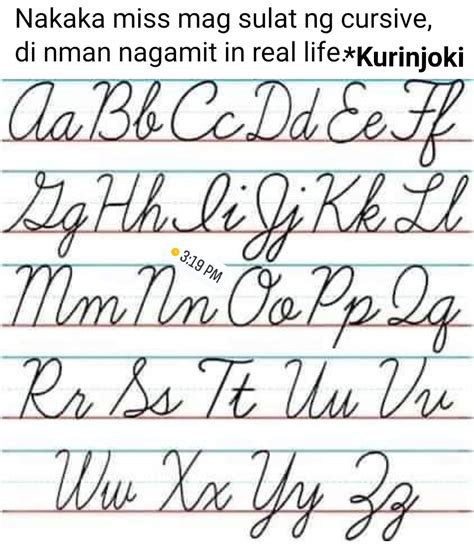 Nakaka miss mag sulat ng cursive,
di nman nagamit in real life.*Kurinjoki
Aa Bb Cc Dd Ee Ff
Gg Hh Ii Jj Kk Ll
3:19 PM
Mm Nn Oo Pp Qq
Rr Ss Tt Uu Vv
Ww Xx Yy Zz